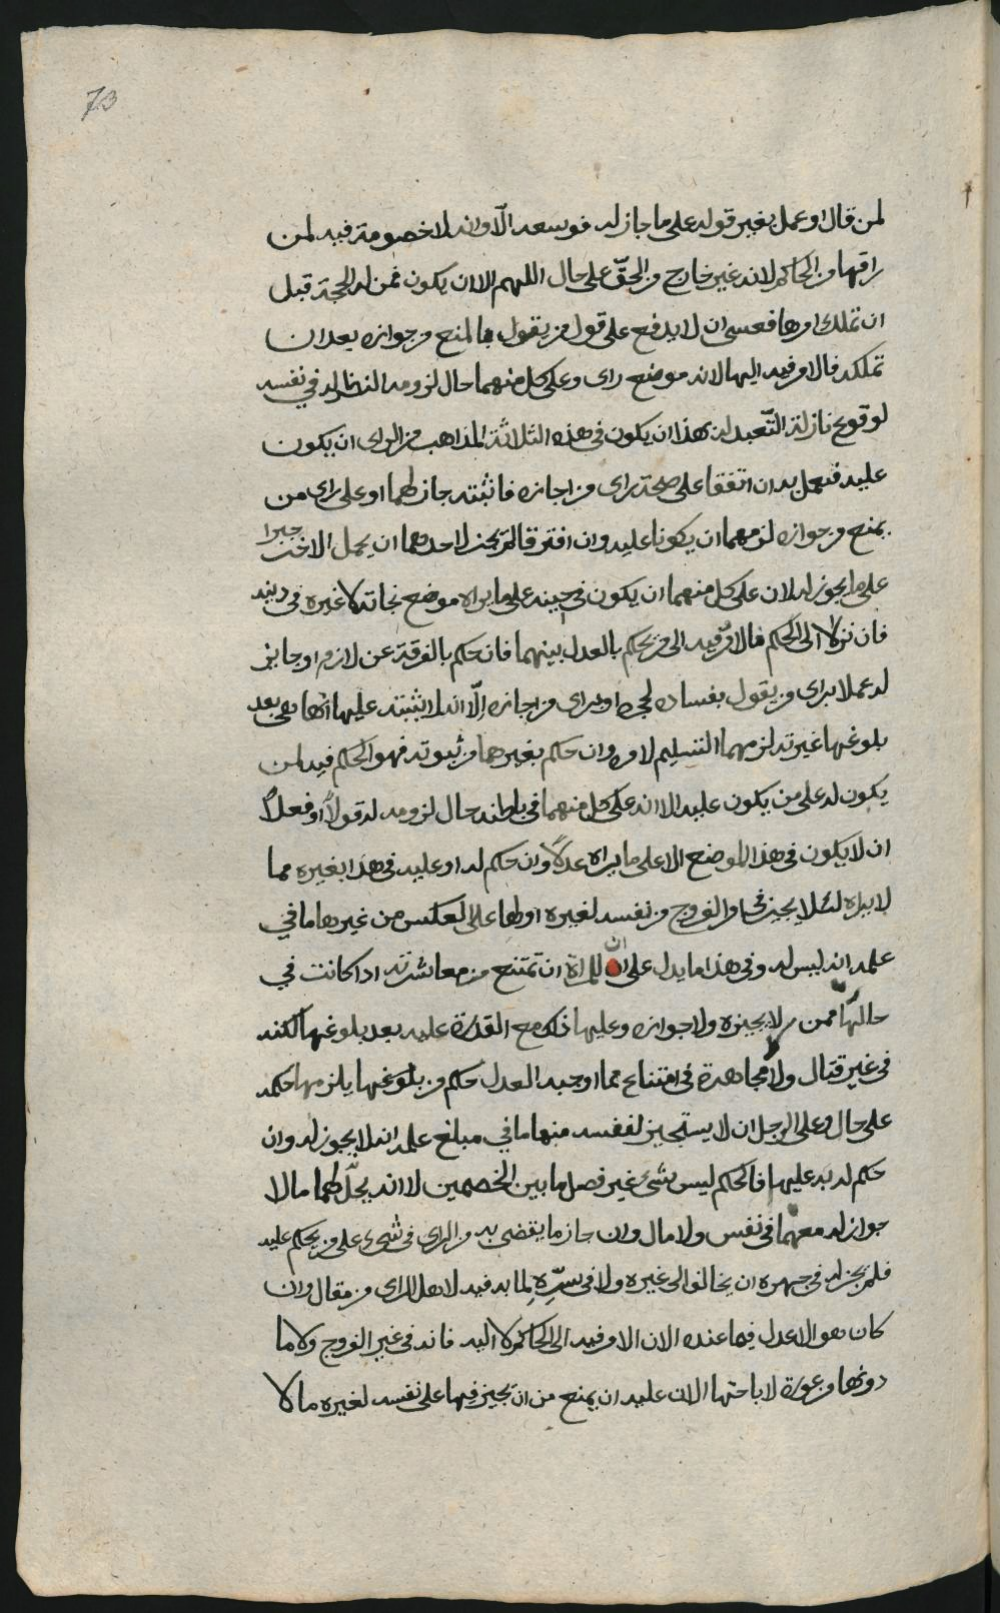 73
لمن قال او عمل بغير قوله على ما جاز له فوسعه الّا وانه لا خصومة فيه لمن
راقها من الحاكم لانه غير خارج من الحقّ على حال اللهم الا ان يكون ممن له الحجة قبل
ان تملك امرها فعسى ان لا يدفع على قول من يقول بالمنع من جوازه بعد ان
تملكه فالامر فيه اليها لانه موضع راى وعلى كل منهما حال لزومه النظر له في نفسه
لوقوع نازلة التّعبد له بهذا ان يكون في هذه الثلاثة المذاهب من الراى ان يكون
عليه فيعمل به ان اتفقا على صحة راى من اجازه فاثبته جاز لهما او على راى من
يمنع من جوازه لزمهما ان يكونا عليه وان افترقا لم يجز لاحدهما ان يحمل الاخر جبرا
على ما يجوز له لان على كل منهما ان يكون في حينه على ما يراه موضع نجاته لا غيره في دينه
فان نزلا الى الحكم فالامر فيه الى من يحكم بالعدل بينهما فان حكم بالفرقة عن لازم او جايز
له عملا براى من يقول بفساده لجي او براى من اجازه إلّا انه لا يثبته عليها الّا بعد
بلوغها غيرته لزمهما التسليم لامره وان حكم بغيرهما من ثبوته فهو الحكم فيه لمن
يكون له على من يكون عليه الا انه على كل منهما في باطنه حال لزومه له قولاً او فعلاً
ان لا يكون في هذا الموضع الا على ما يراه عدلاً وان حكم له او عليه في هذا بغيره مما
لا يراه لئلا يجيز شيا من الفروج من نفسه لغيره او لها على العكس من غيرها ما في
علمه انه ليس له وفي هذا ما يدل على ان للمراة ان تمتنع من معاشرته اذا كانت في
حالها ممن لا يجيزه ولا جوازه وعليها ذلك مع القدرة عليه بعد بلوغها لكنه
في غير قتال ولا مجاهدة في امتناع مما اوجبه العدل حكم من بلوغها يلزمها حكمه
على حال وعلى الرجل ان لا يستجيز لنفسه منها ما في مبلغ علمه انه لا يجوز له وان
حكم له به عليها فالحكم ليس بشئ غير فصل ما بين الخصمين لا انه يحلّ لهما ما لا
جواز له معهما في نفس ولا مال وان جاز ما يقضى به من الراى في شيء على من يحكم عليه
فلم يجز له في جهره ان يخالف الى غيره ولا في سرّه لما به فيه لاهل الراى من مقال وان
كان هو الاعدل فيما عنده الان الامر فيه الى الحاكم لا اليه فانه في غير الفروج ولا ما
دونها من عورة لاباحتها الان عليه ان يمنع من ان يجيز فيها على نفسه لغيره ما لا